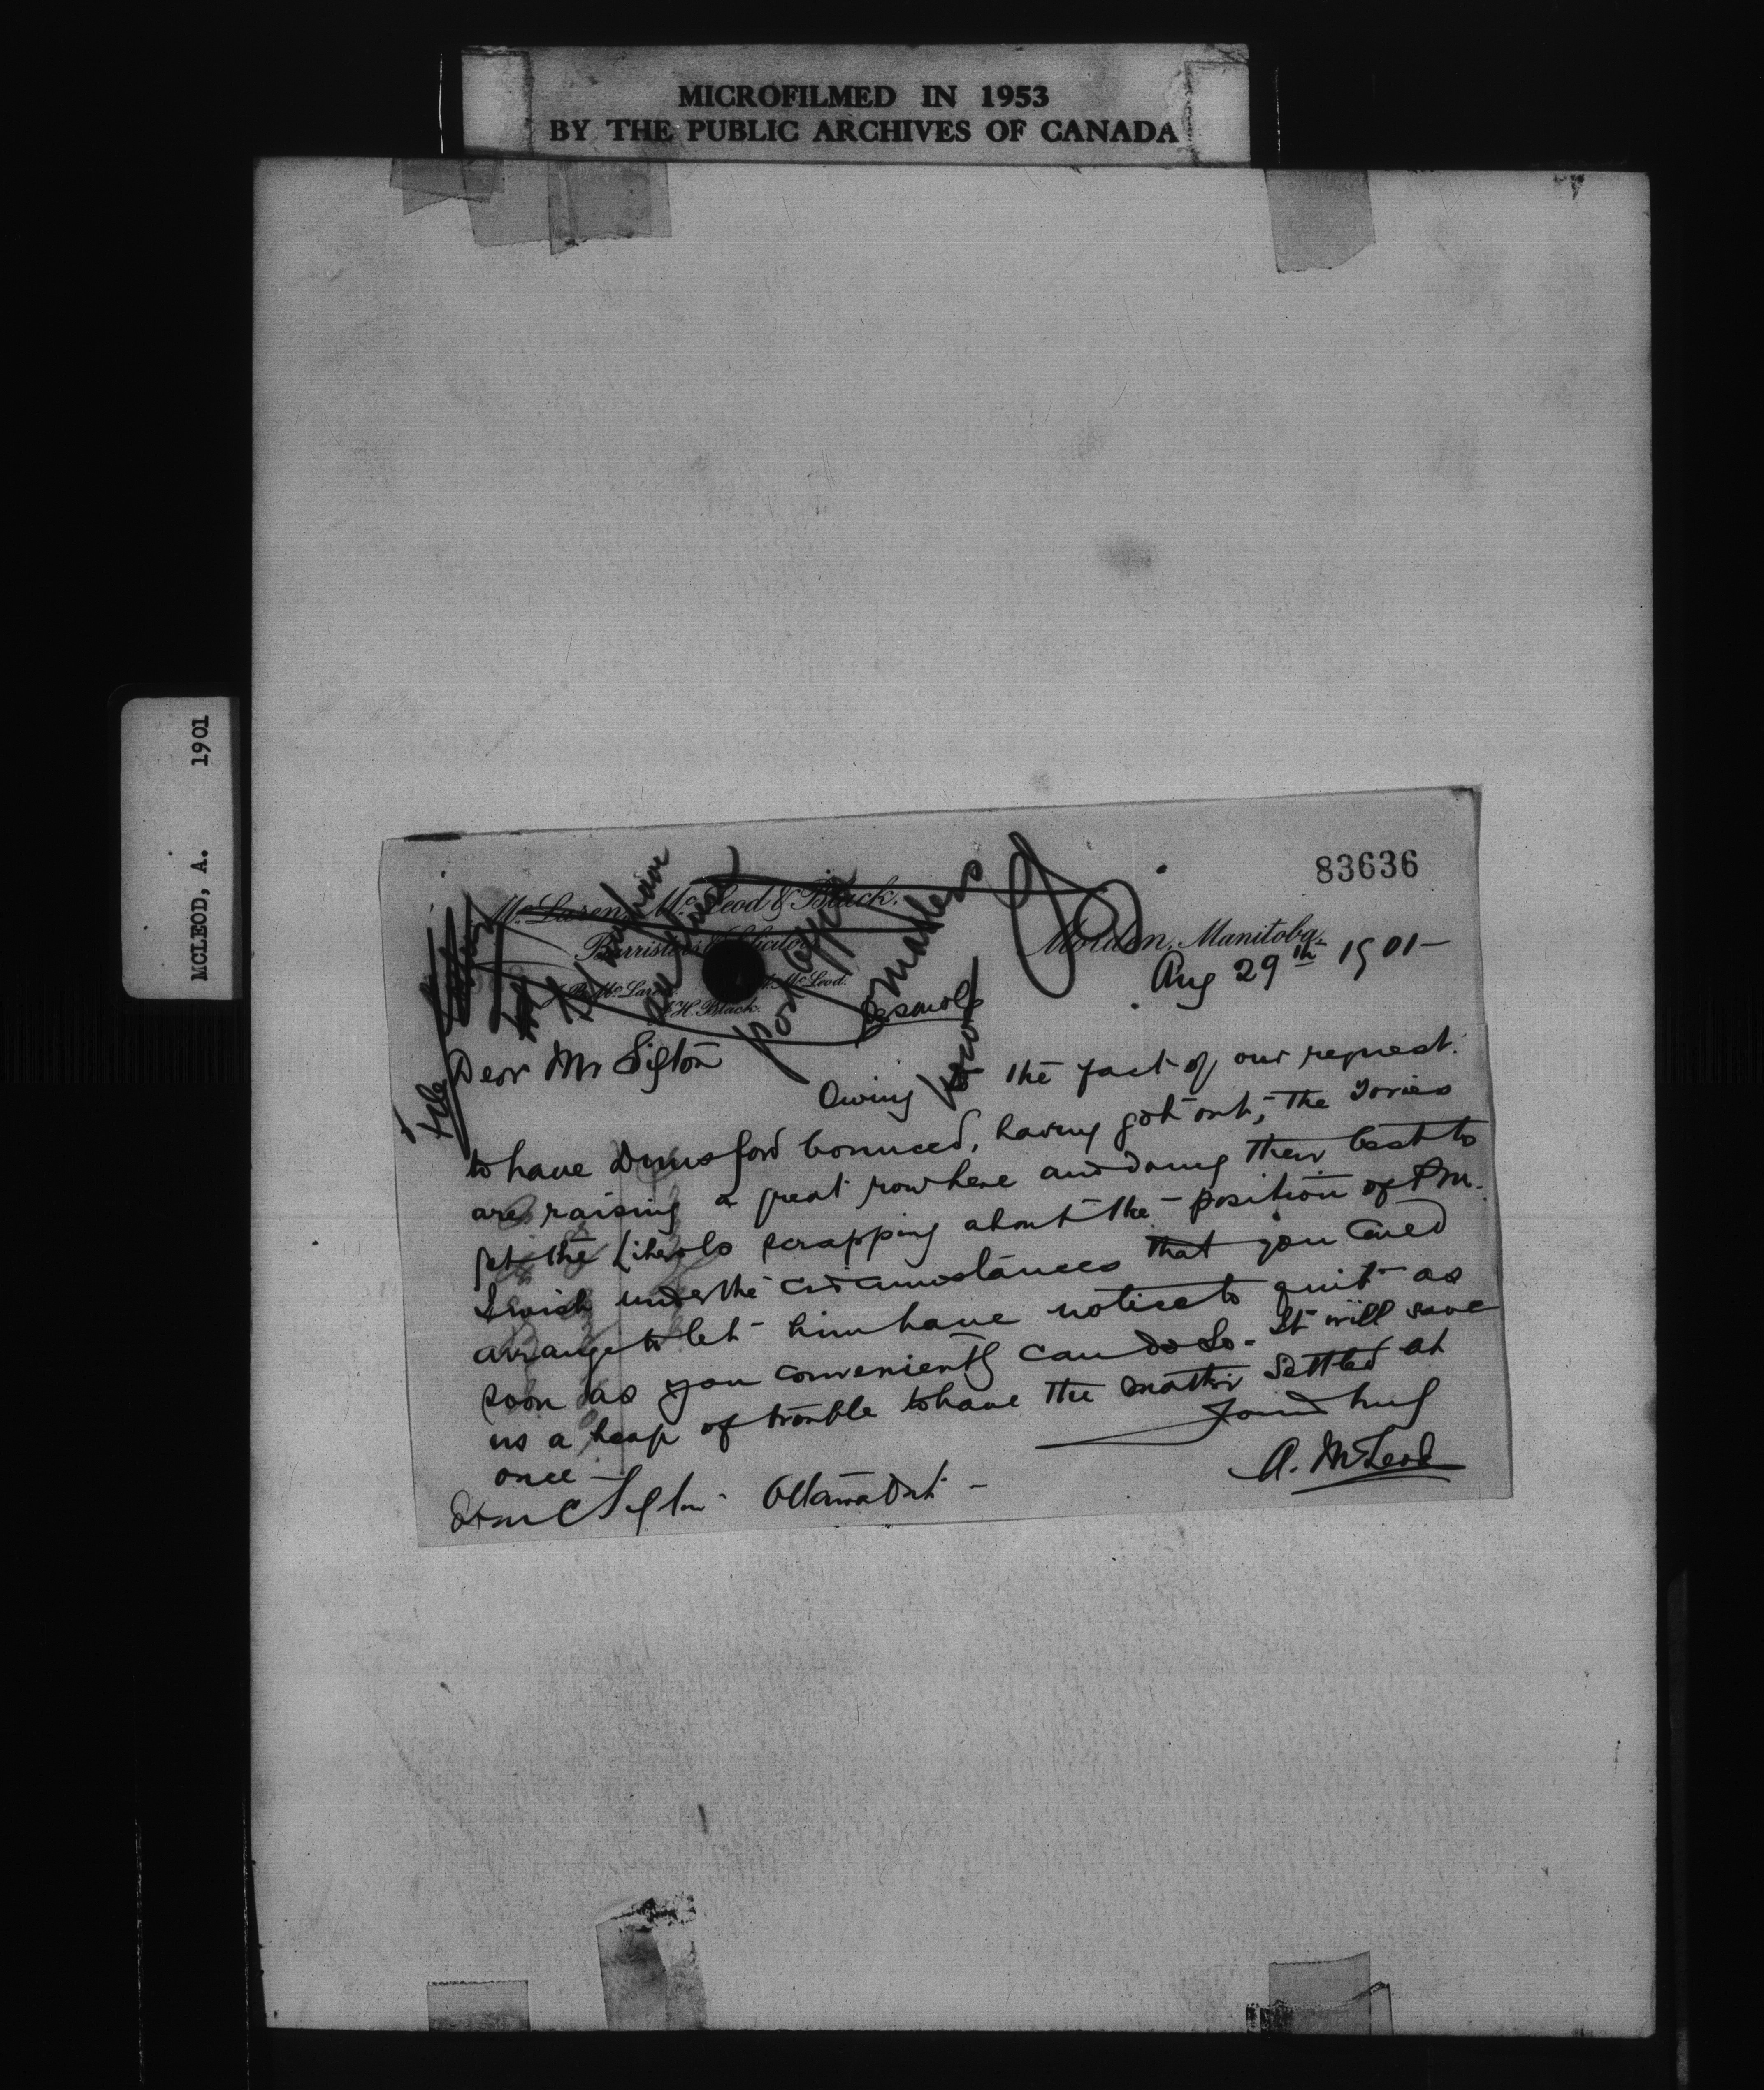 MICROFILMED IN 1953
BY THE PUBLIC ARCHIVES OF CANADA
MCLEOD, A. 1901
83636
McLaren, McLeod & Black.
Barristers & Solicitors
J. B. McLaren. A. McLeod.
J. H. Black.
Morden, Manitoba,
Aug 29th 1901-
Personal
Dear Mr Sifton
Owing to the fact of our request
to have Dunsford bounced, having got out, the Tories
are raising a great row here and doing their best to
get the Liberals scrapping about the position of P.M.
I wish under the circumstances that you could
arrange to let him have notice to quit as
soon as you conveniently can do so - It will save
us a heap of trouble to have the matter settled at
once - Yours truly
A. McLeod
Hon C Sifton - Ottawa Ont -
file